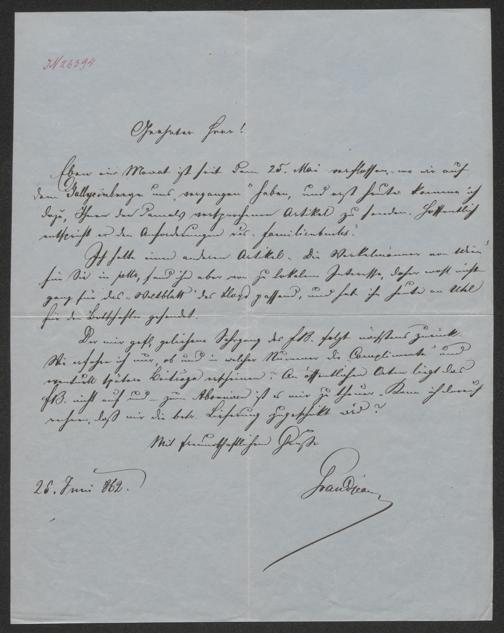 IN 23394
Geehrter Herr!
Eben ein Monat ist seit dem 25. Mai verflossen, wo wir auf
dem Gallyzinberge uns "vergangen" haben, und erst heute komme ich
dazu, Ihnen den damals versprochenen Artikel zu senden. Hoffentlich
entspricht er den Anforderungen des Familienbuches.
Ich hatte einen anderen Artikel. Die Werkelmänner von Wien
für Sie in petto, fand ihn aber von zu lokalem Interesse, daher wohl nicht
ganz für das "Westblatt" des Lloyd passend, und hab ihn heute an Uhl
für den Botschafter gesendet.
Der mir gefl. geliehene Jahrgang des FB. folgt nächstens zurück.
Wie erfahre ich nur, ob und in welcher Nummer die Complimente und
eventuell spätere Beiträge erscheinen? An öffentlichen Orten liegt das
FB. nicht auf und zum Abonnement ist es mir zu theuer. Kann ich darauf
rechnen, daß mir die betr. Lieferung zugeschickt wird?
Mit freundschaftlichem Gruße
25. Juni 862.
Grandjean